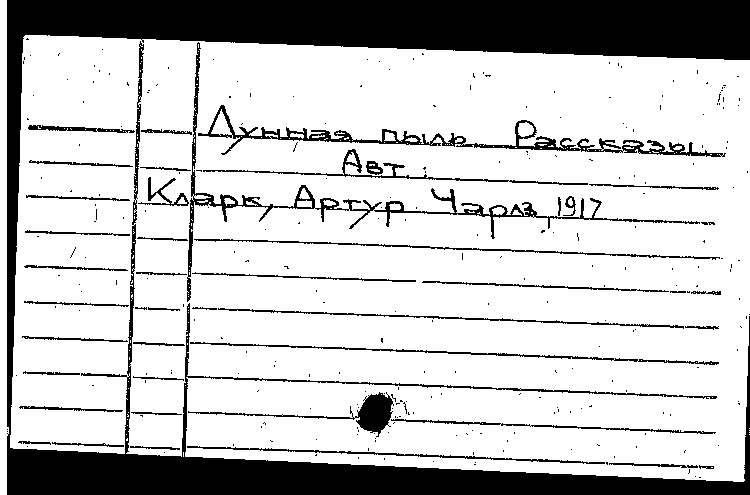 Лунная пыль. Рассказы.
Авт.:
Кларк, Артур Чарлз, 1917